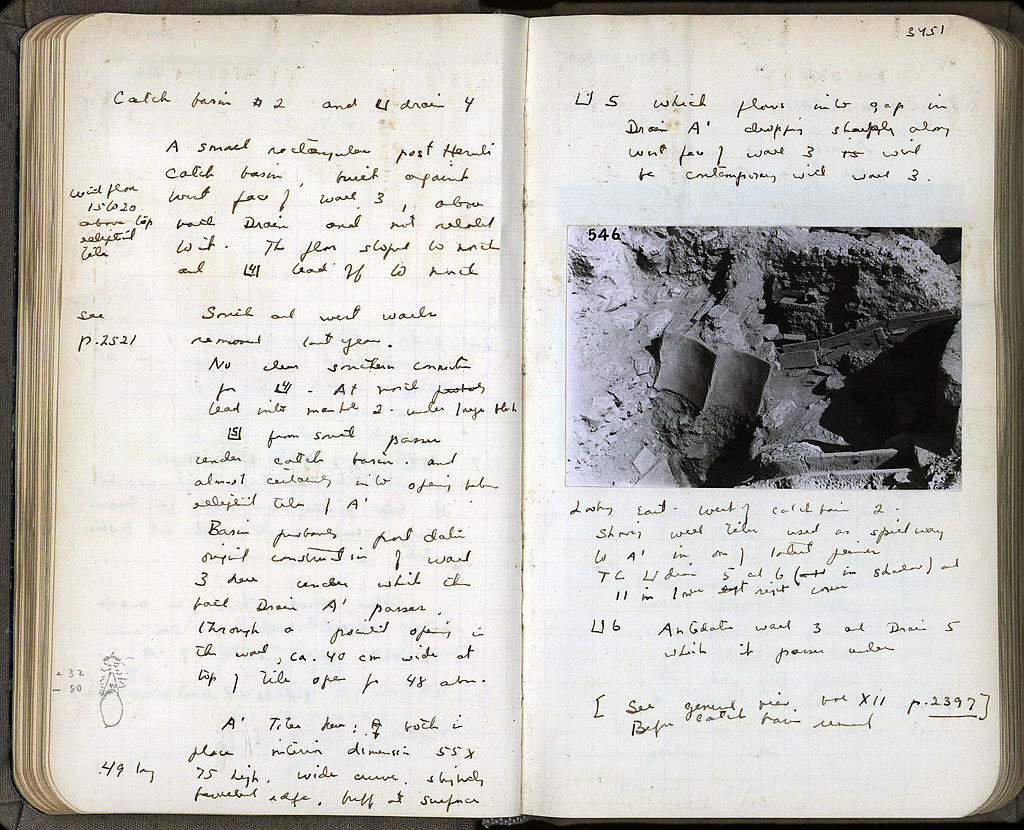 Catch basin #2 and ⊔ drain 4
A small rectangular post Heruli
catch basin, built against
west face of wall 3, above
with floor
15 to 20
above top
elliptical
tile
main Drain and not related
to it. The floor sloped to north
and 4 lead off to north
see
p. 2521
South and west walls
removed last year.
No clear southern connection
for 4. At north
lead into manhole 2. under large
5 from south passes
under catch basin. and
almost certainly into opening between
elliptical tiles of A'
Basin probably post dates
original construction of wall
3 here under which the
tail Drain A' passes,
through a pointed opening in
the wall, ca. 40 cm wide at
top of tile open for 48 above.
- 32
- 80
A' Tiles here: both in
place interior dimension 55 x
.49 long
75 high. wide curve. slightly
edge, buff at surface
3451
⊔ 5 which flows into gap in
Drain A' dropping sharply along
west face of wall 3 will
be contemporary with wall 3.
546
Looking East. West of catch basin 2.
Showing well tiles used as spillway
to A' in one of latest
TC ⊔ drain 5 and 6 (in shadow) and
11 in lower right corner
⊔ 6 Antedates wall 3 and Drain 5
which it passes under
[ See general view. vol XII p. 2397 ]
Before catch basin removed